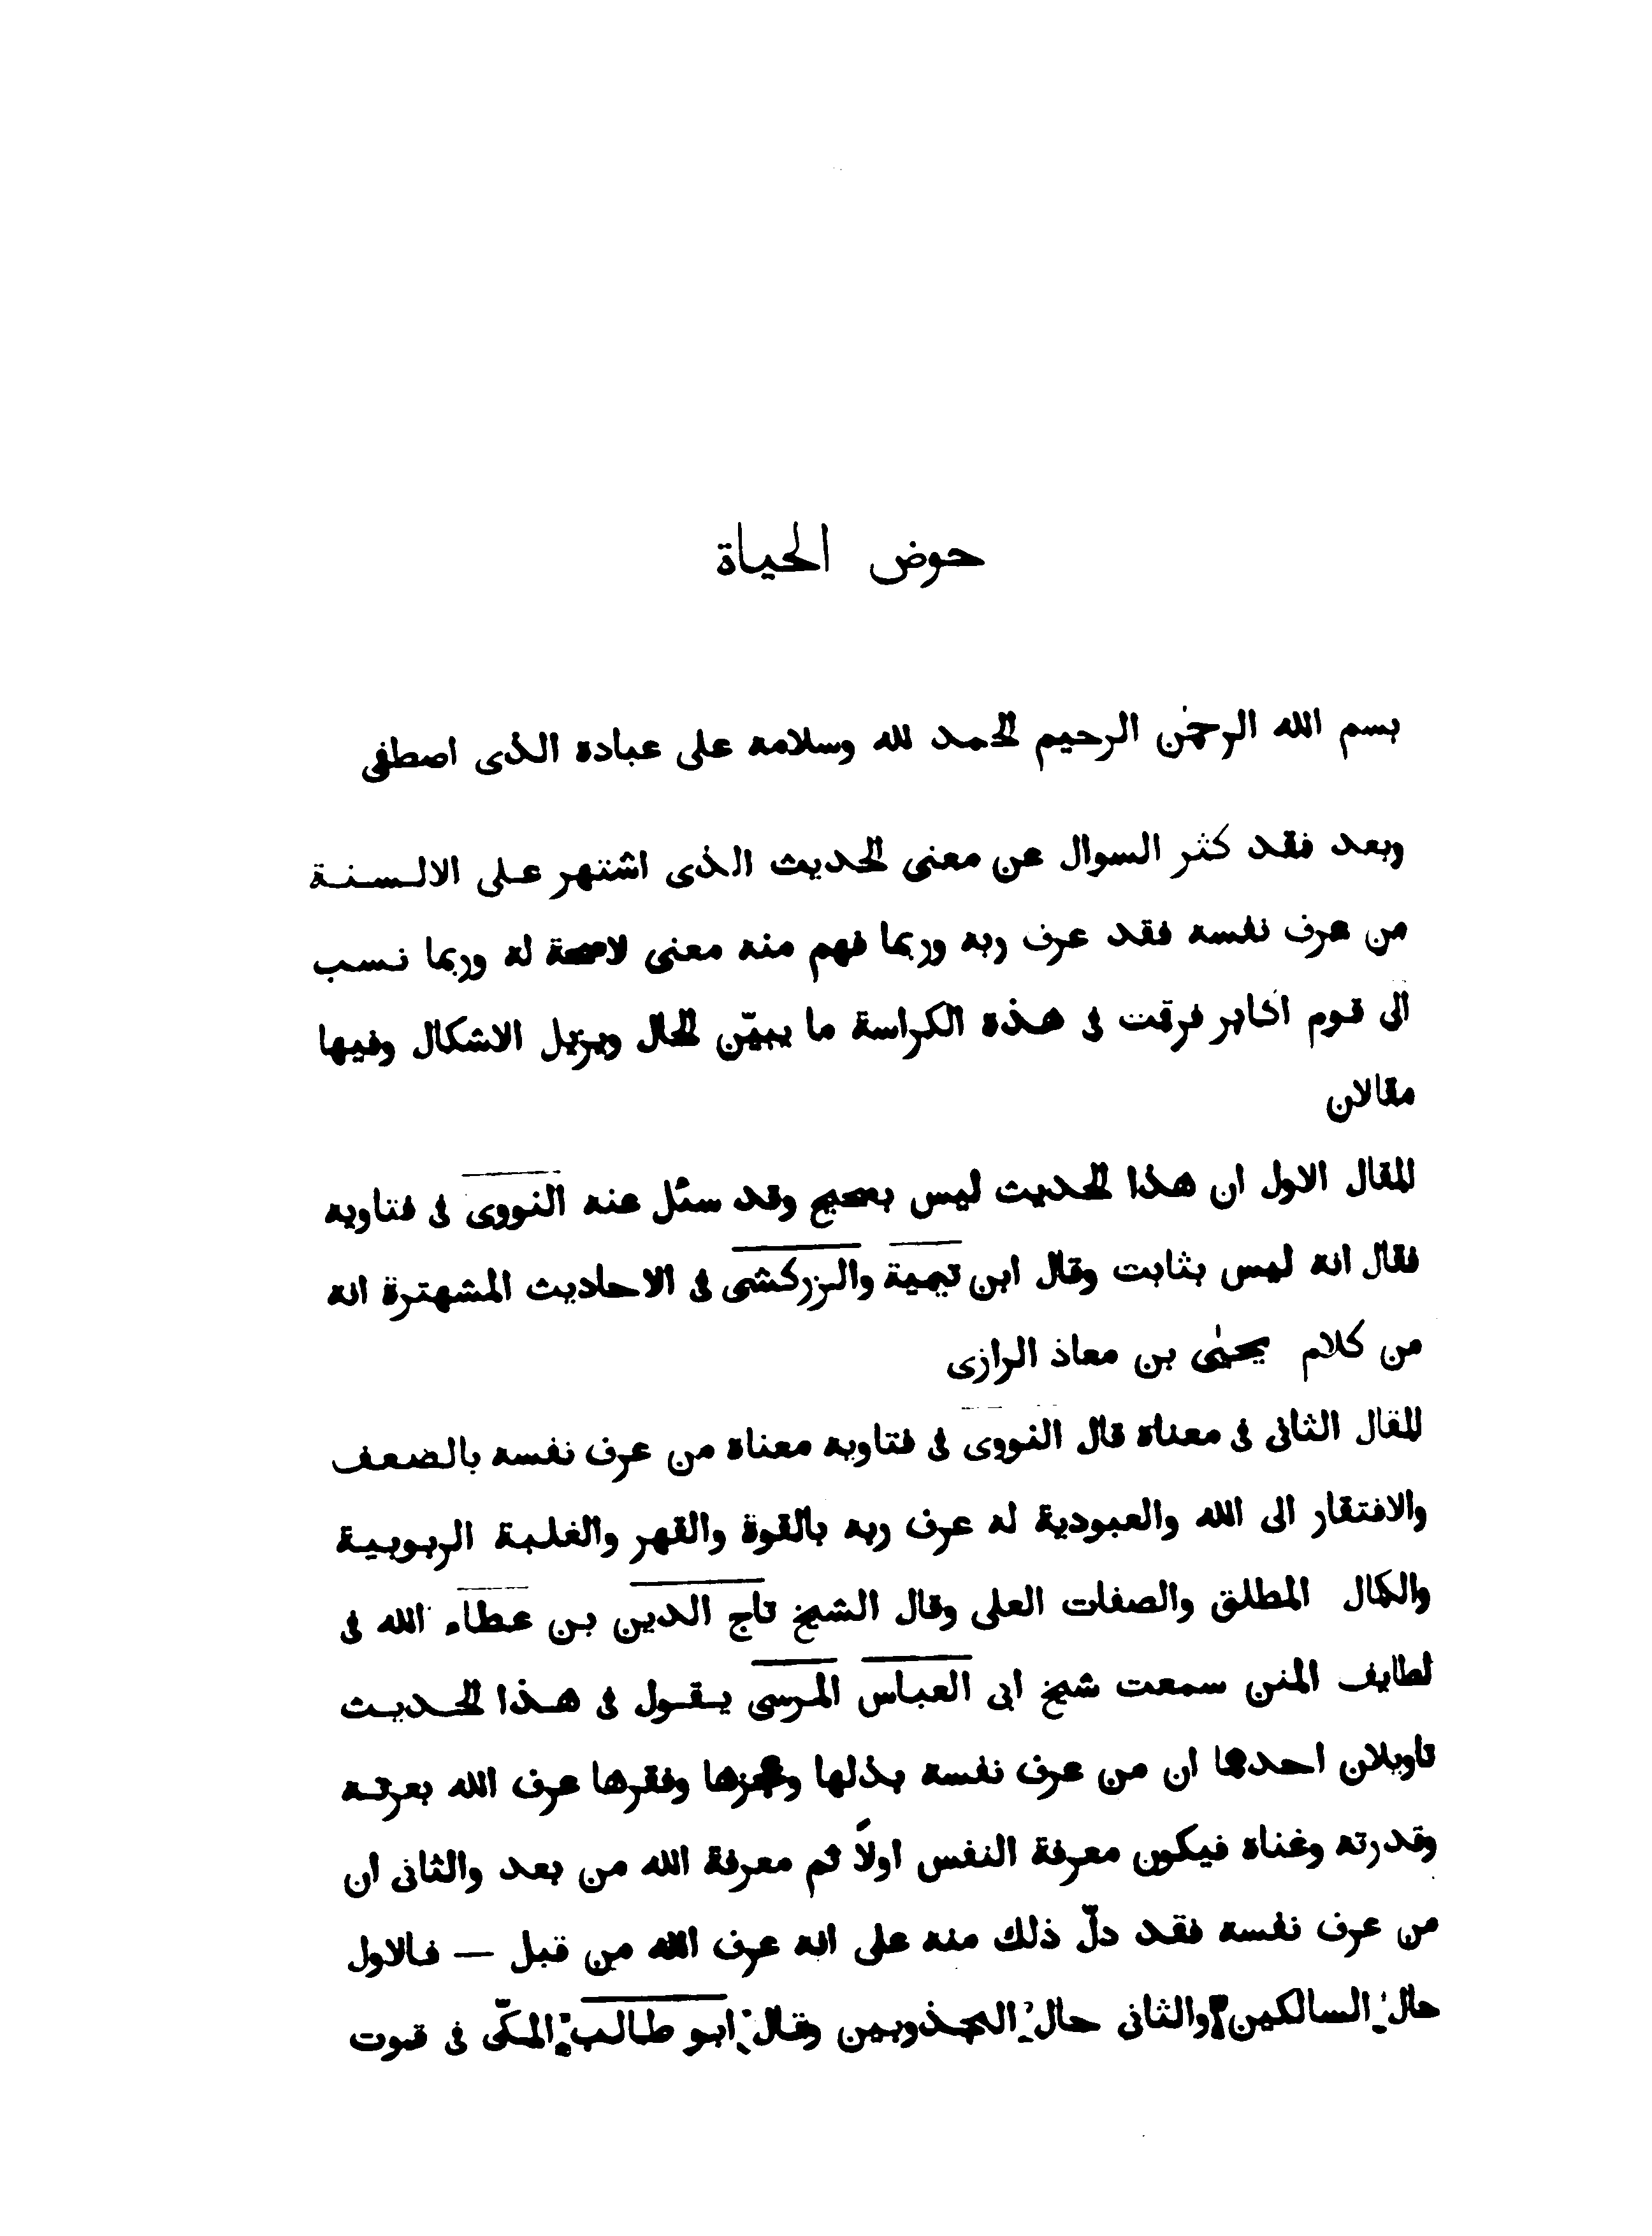 حوض الحياة
بسم الله الرحمٰن الرحيم الحمد لله وسلامه على عبادة الذى اصطفى
وبعد فقد كثر السوال عن معنى الحديث الذى اشتهر على الالسنة
من عرف نفسه فقد عرف ربه وربما فهم منه معنى لاصحة له وربما نسب
الى قوم اكابر فرقت فى هذه الكراسة ما يبيّن الحال ويزيل الاشكال وفيها
مقالان
المقال الاول ان هذا الحديث ليس بصحيح وقد سئل عنه النووى فى فتاويه
فقال انه ليس بثابت وقال ابن تيمية والزركشى فى الاحاديث المشهترة انه
من كلام يحيٰى بن معاذ الرازى
المقال الثانى فى معناة قال النووى فى فتاويه معناة من عرف نفسه بالضعف
والافتقار الى الله والعبودية له عرف ربه بالقوة والقهر والغلبة الربوبية
والكمال المطلق والصفات العلى وقال الشيخ تاج الدين بن عطاء الله فى
لطايف المنن سمعت شيخ ابى العباس المرسى يقول فى هذا الحديث
تاويلان احدهما ان من عرف نفسه بذلها وعجزها وفقرها عرف الله بعزته
وقدرته وغناة فيكون معرفة النفس اولاً ثم معرفة الله من بعد والثانى ان
من عرف نفسه فقد دلّ ذلك منه على انه عرف الله من قبل — فالاول
حال السالكين والثانى حال المجذوبين وقال ابو طالب المكّى فى قوت